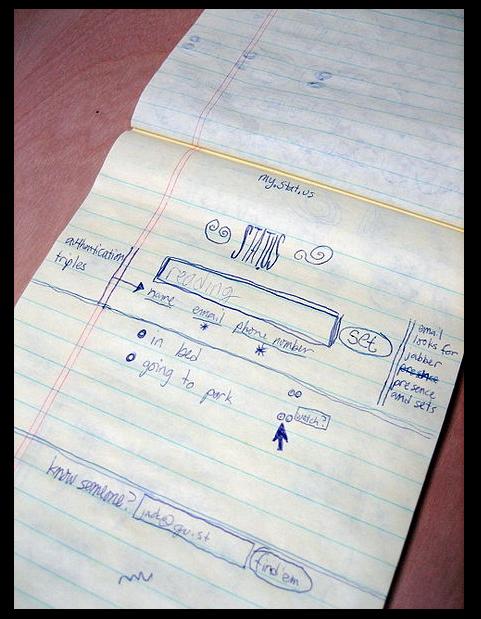 my.stat.us
STATUS
authentication
triples
reading
set
name email phone number
email
looks for
jabber
presence
presence
and sets
in bed
going to park
watch?
know someone?
jack@gu.st
find 'em